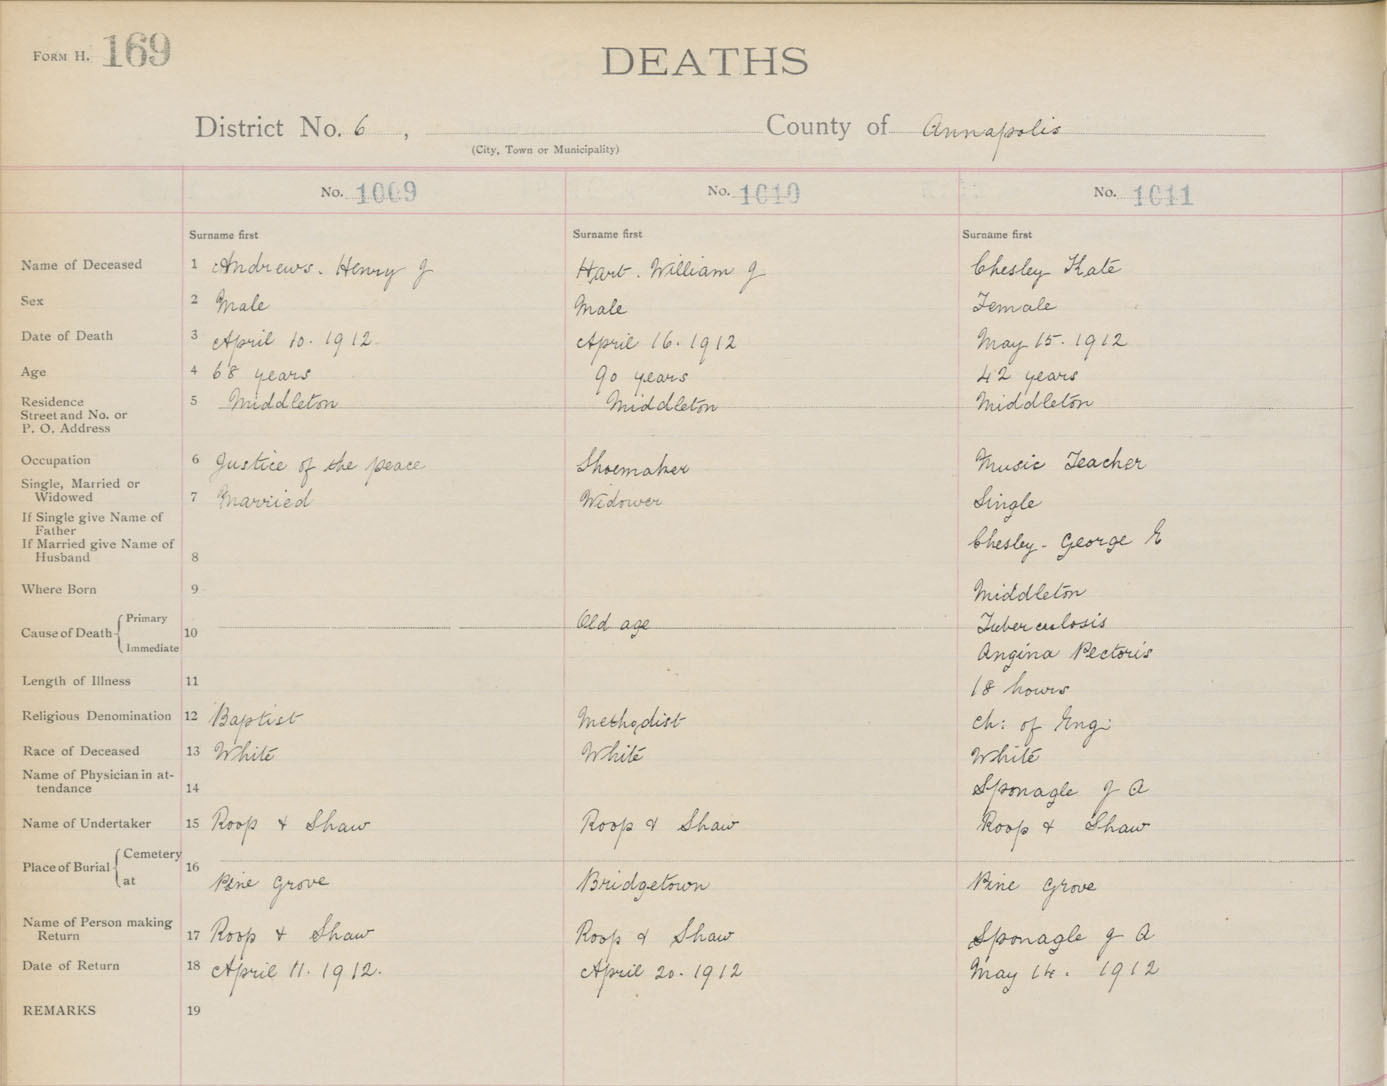 FORM H. 169
DEATHS
District No. 6 , County of Annapolis
(City, Town or Municipality)
No. 1009 No. 1010 No. 1011
Surname first Surname first Surname first
Name of Deceased 1 Andrews. Henry J Hart. William J Chesley Kate
Sex 2 Male Male Female
Date of Death 3 April 10. 1912. April 16. 1912 May 15. 1912
Age 4 68 years 90 years 42 years
Residence 5 Middleton Middleton Middleton
Street and No. or
P. O. Address
Occupation 6 Justice of the peace Shoemaker Music Teacher
Single, Married or
Widowed 7 Married Widower Single
If Single give Name of
Father
If Married give Name of Chesley. George E
Husband 8
Where Born 9 Middleton
Primary Old age Tuberculosis
Cause of Death 10
Immediate Angina Pectoris
Length of Illness 11 18 hours
Religious Denomination 12 Baptist Methodist Ch: of Eng:
Race of Deceased 13 White White White
Name of Physician in at-
tendance 14 Sponagle J A
Name of Undertaker 15 Roop & Shaw Roop & Shaw Roop & Shaw
Cemetery
Place of Burial 16
at Pine Grove Bridgetown Pine Grove
Name of Person making
Return 17 Roop & Shaw Roop & Shaw Sponagle J A
Date of Return 18 April 11. 1912. April 20. 1912 May 14. 1912
REMARKS 19